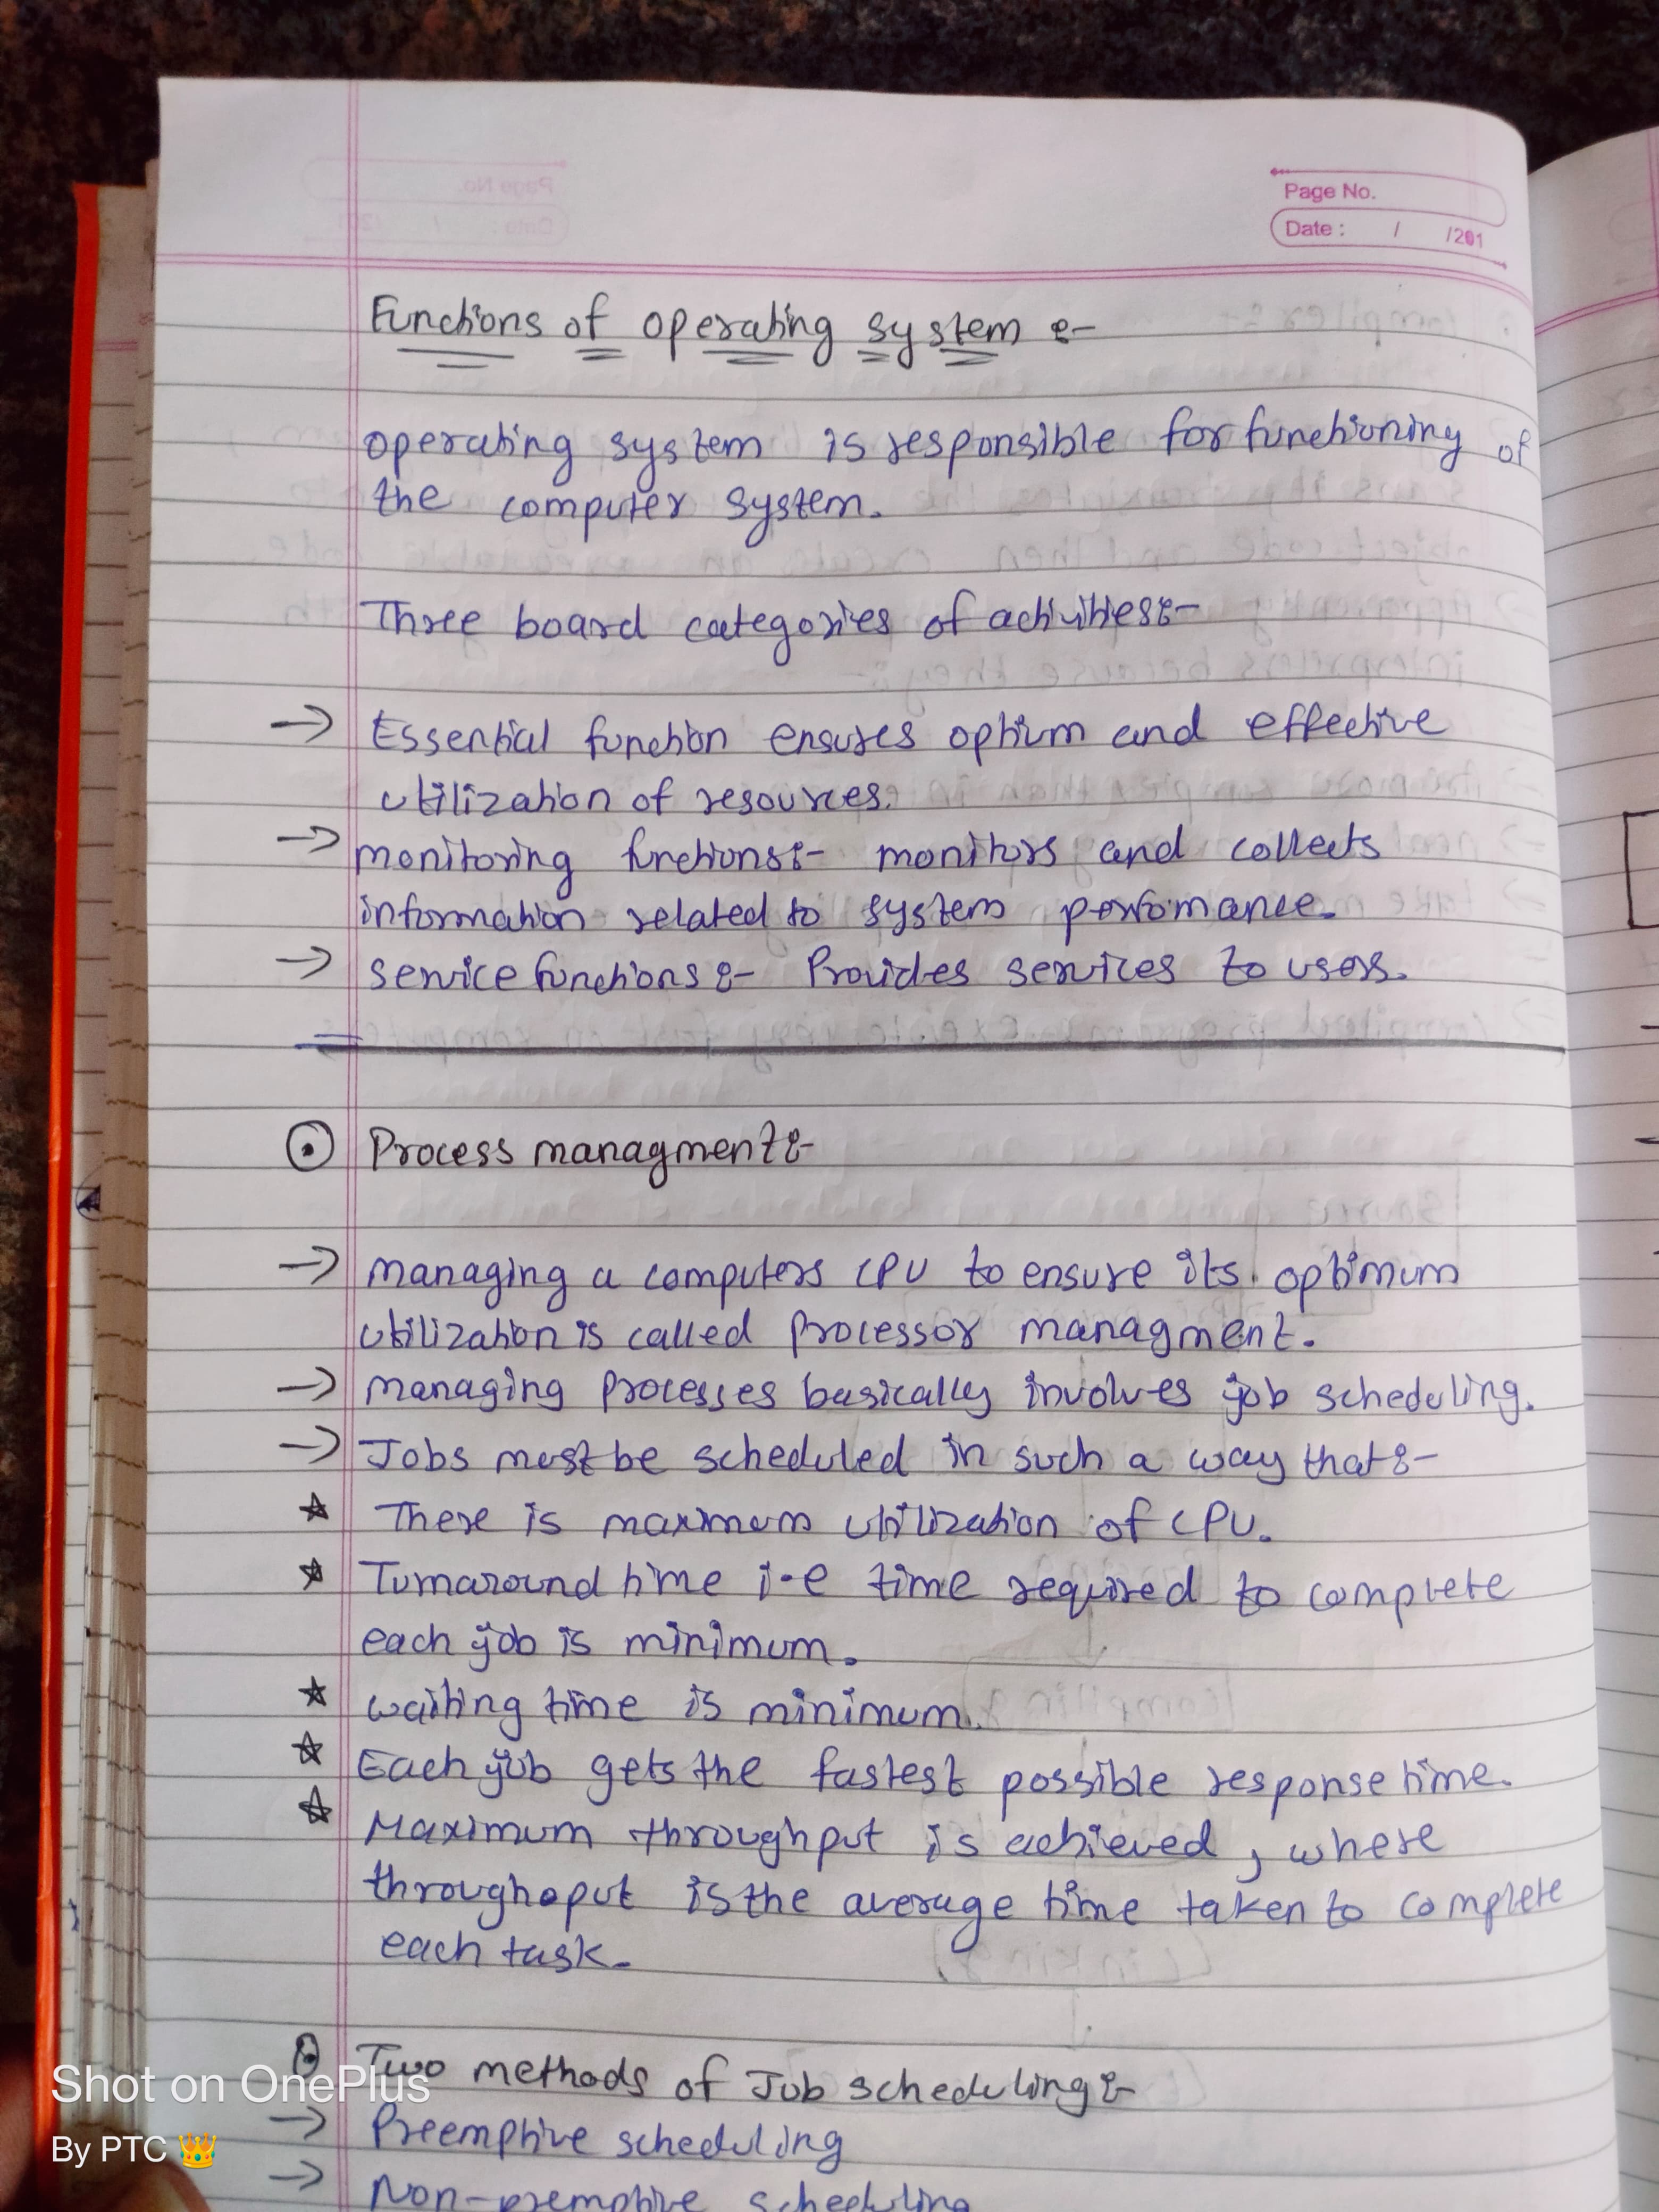 Page No.
Date : / /201
Functions of operating system :-
operating system is responsible for functioning of
the computer system.
Three board categories of activities:-
→ Essential function ensures optium and effective
utilization of resources.
→ monitoring functions:- monitors and collects
information related to system perfomance.
→ service functions :- Provides services to users.
Process managment:-
→ managing a computers CPU to ensure its optimum
utilization is called Processor managment.
→ managing Processes basically involves job scheduling.
→ Jobs must be scheduled in such a way that :-
☆ There is maximum utilization of CPU.
☆ Turnaround time i.e time required to complete
each job is minimum.
☆ waiting time is minimum.
☆ Each job gets the fastest possible response time.
☆ Maximum throughput is achieved, where
throughoput is the average time taken to complete
each task.
Two methods of Job scheduling :-
→ Preemptive scheduling
→ Non-premptive scheduling
Shot on OnePlus
By PTC 👑